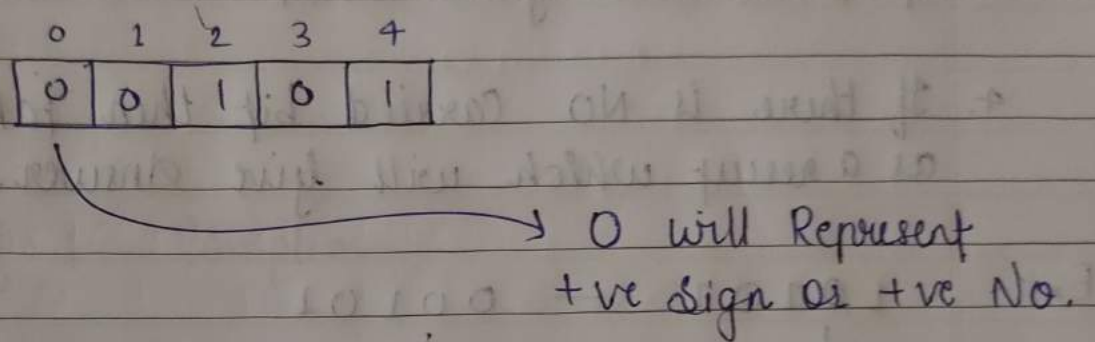 0 1 2 3 4
0 0 1 0 1
0 will Represent
+ve Sign or +ve No.